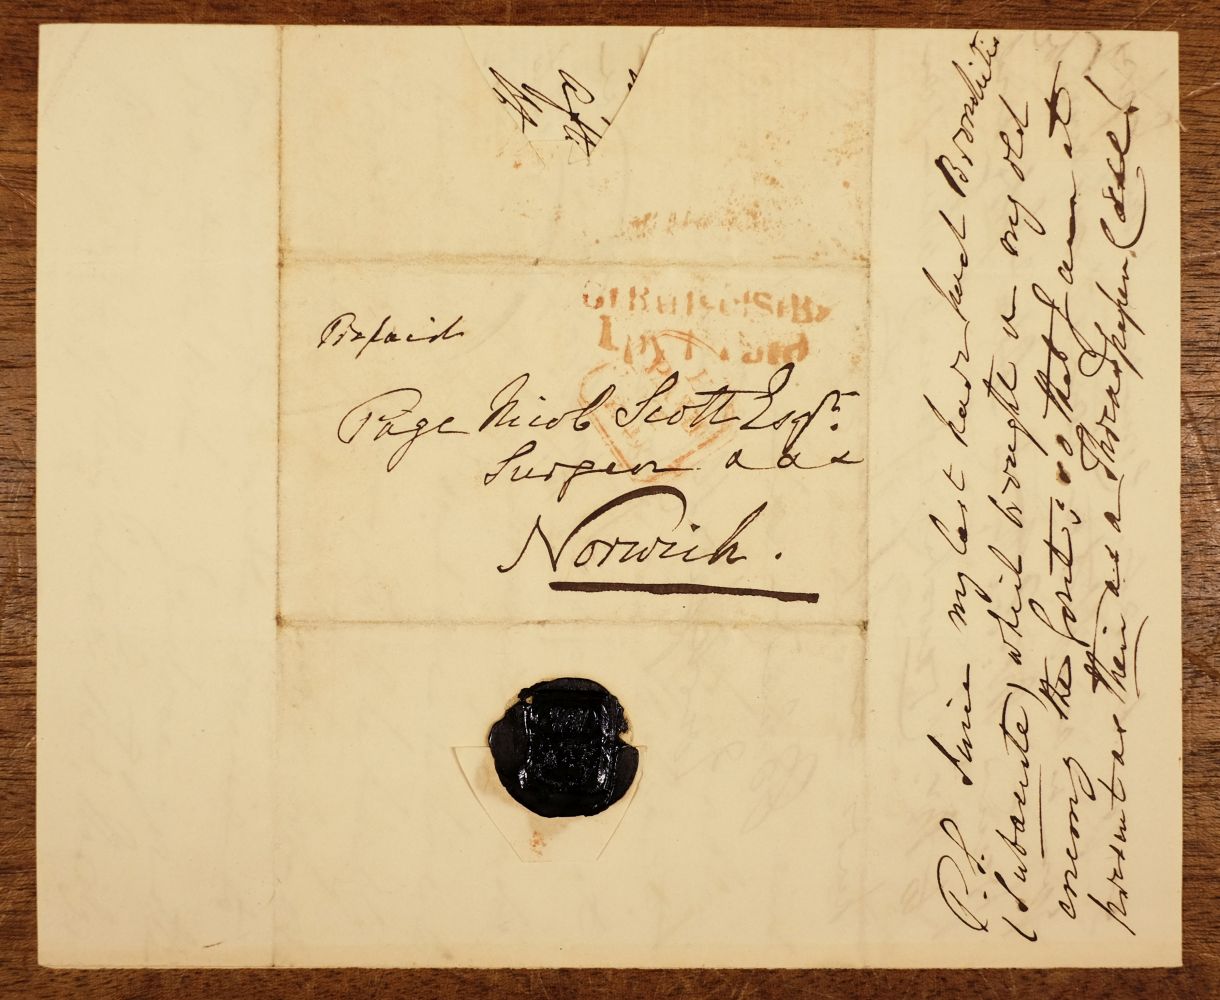 Prepaid
Page Nicol Scott Esqr.
Surgeon &a &a &a
Norwich.
P.S. Since my last have had Bronchitis
(Subacute) which brought on my old
enemy the Gout; so that I am at
present as thin as a Thread paper